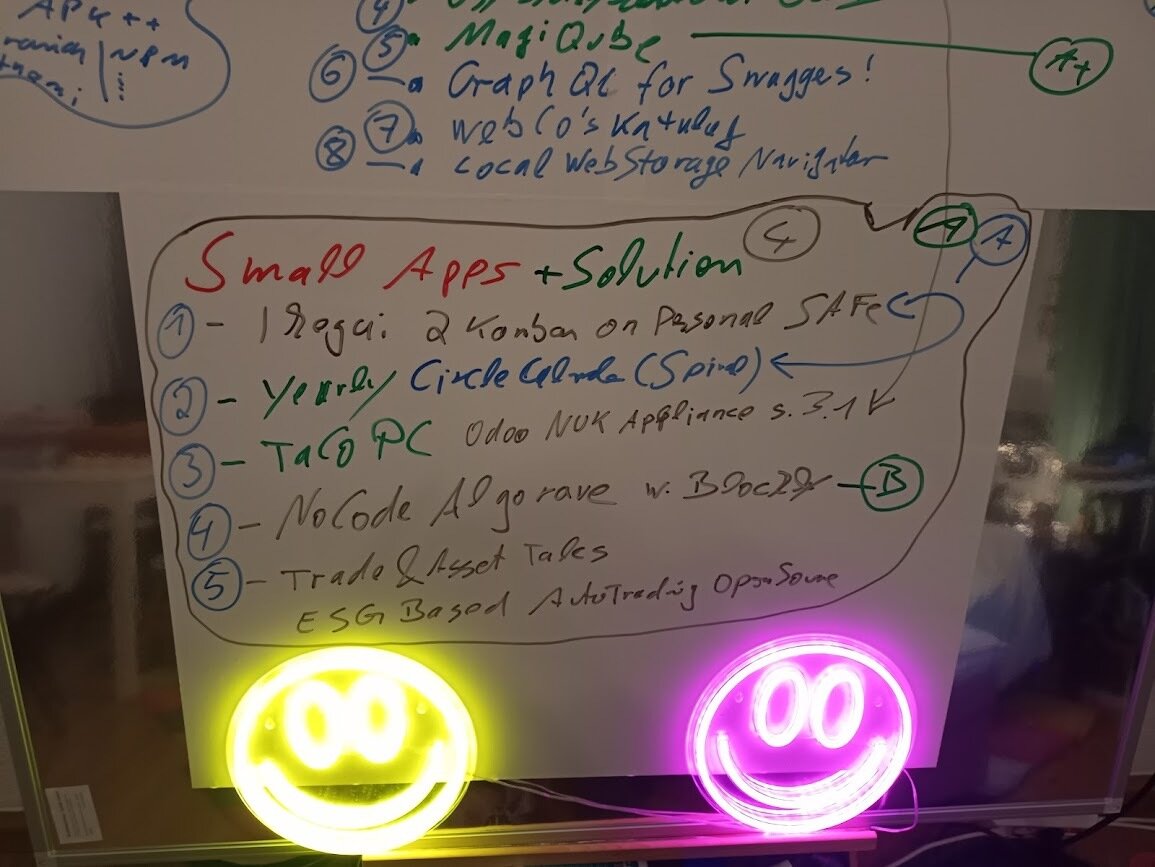 APK++
NPM
④
⑤ MagiQube A+
⑥ - GraphQL for Swagges!
⑦ WebCo's Katalog
⑧ - Local WebStorage Navigator
Small Apps + Solution 4 A A
① - 1 Regal: 2 Kanban on Personal SAFe
② - Yearly Circle (Spiral)
③ - TaCo PC Odoo NUK Appliance s. 3.1
④ - NoCode Algorave w. B
⑤ - Trade & Asset Tales
ESG Based AutoTrading OpenSource